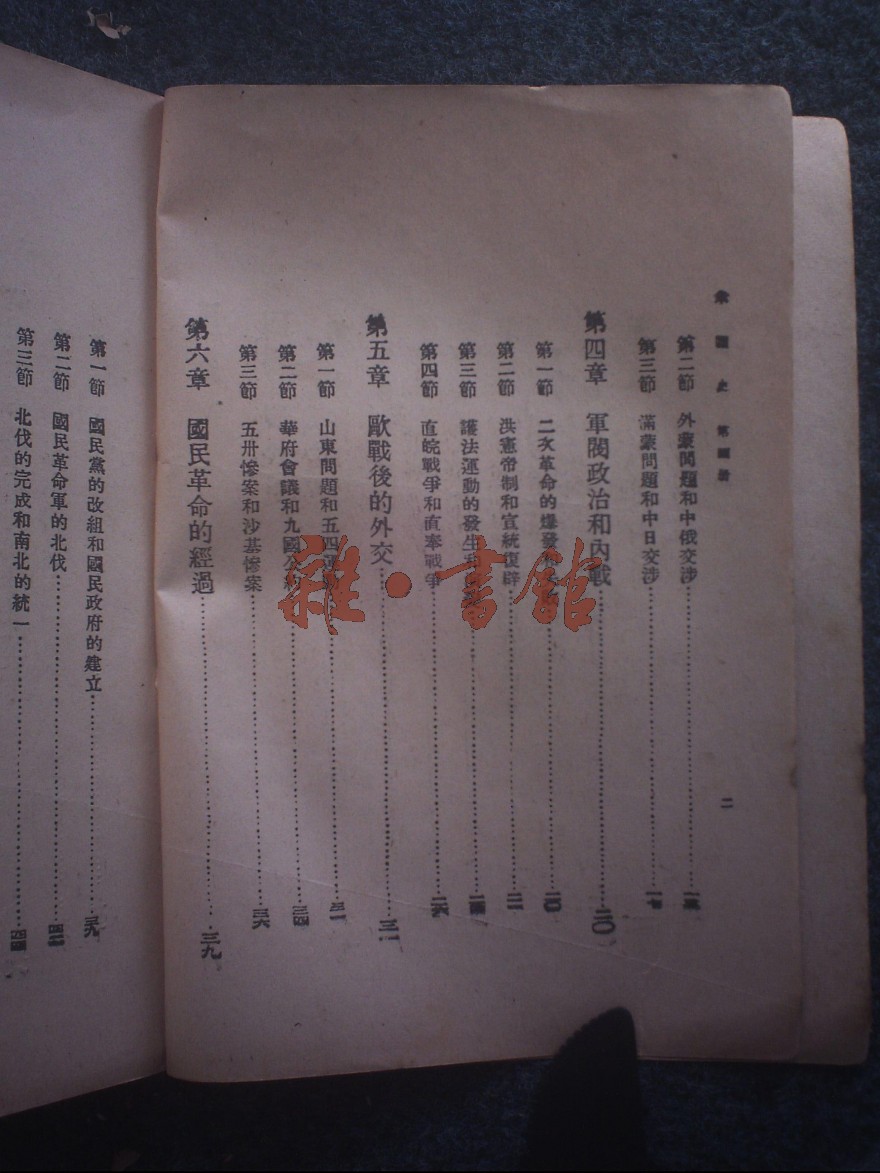 史 第四册
二
第二節 外蒙問題和中俄交涉
第三節 滿蒙問題和中日交涉……一七
第四章 軍閥政治和內戰……二〇
第一節 二次革命的爆發……二〇
第二節 洪憲帝制和宣統復辟……二一
第三節 護法運動的發生和……二四
第四節 直皖戰爭和直奉戰爭……二六
第五章 歐戰後的外交……三一
第一節 山東問題和五四運動……三一
第二節 華府會議和九國公約……三四
第三節 五卅慘案和沙基慘案……三六
第六章 國民革命的經過……三九
第一節 國民黨的改組和國民政府的建立……三九
第二節 國民革命軍的北伐
第三節 北伐的完成和南北的統一
雜·書館